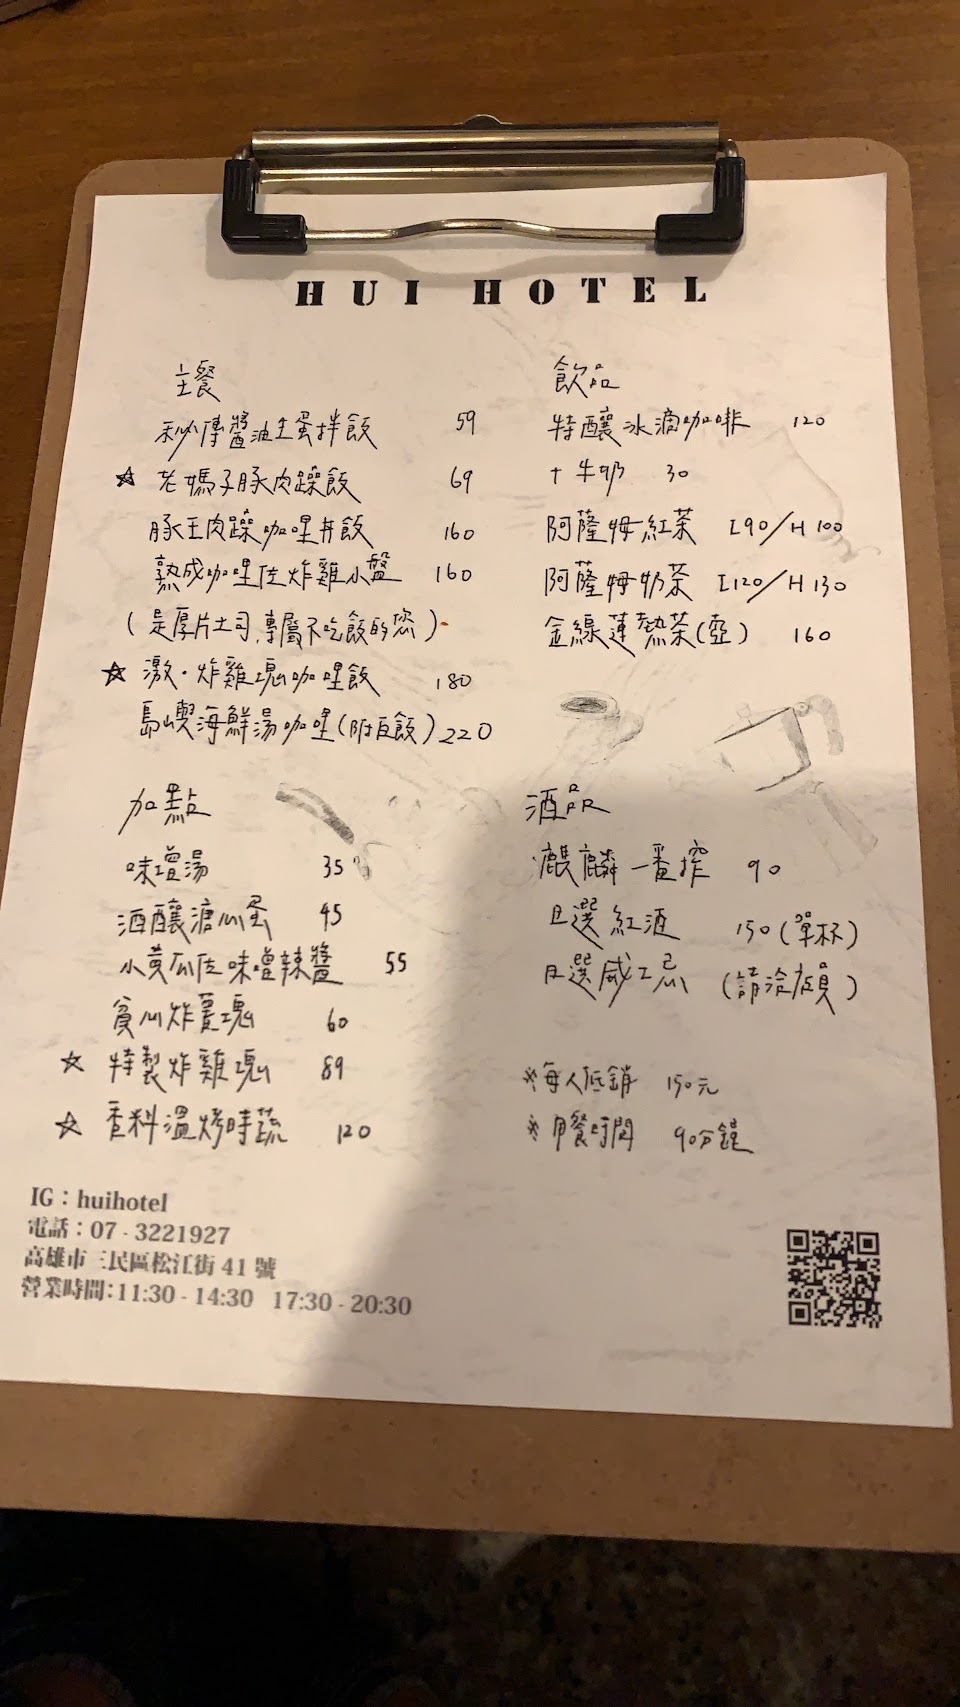 HUI HOTEL
主餐
秘傳醬油生蛋拌飯 59
☆ 老媽子豚肉躁飯 69
豚王肉躁咖哩丼飯 160
熟成咖哩佐炸雞小盤 160
(是厚片土司,專屬不吃飯的您)
☆ 激·炸雞塊咖哩飯 180
島嶼海鮮湯咖哩(附白飯) 220
加點
味增湯 35
酒釀溏心蛋 45
小黃瓜佐味噌辣醬 55
貪心炸薯塊 60
☆ 特製炸雞塊 89
☆ 香料溫烤時蔬 120
飲品
特釀冰滴咖啡 120
+牛奶 30
阿薩姆紅茶 I90/H100
阿薩姆奶茶 I120/H130
金線蓮熱茶(壺) 160
酒品
麒麟一番搾 90
日選紅酒 150(單杯)
日選威士忌 (請洽店員)
※每人低銷 150元
※用餐時間 90分鐘
IG:huihotel
電話:07 - 3221927
高雄市三民區松江街 41 號
營業時間:11:30 - 14:30 17:30 - 20:30